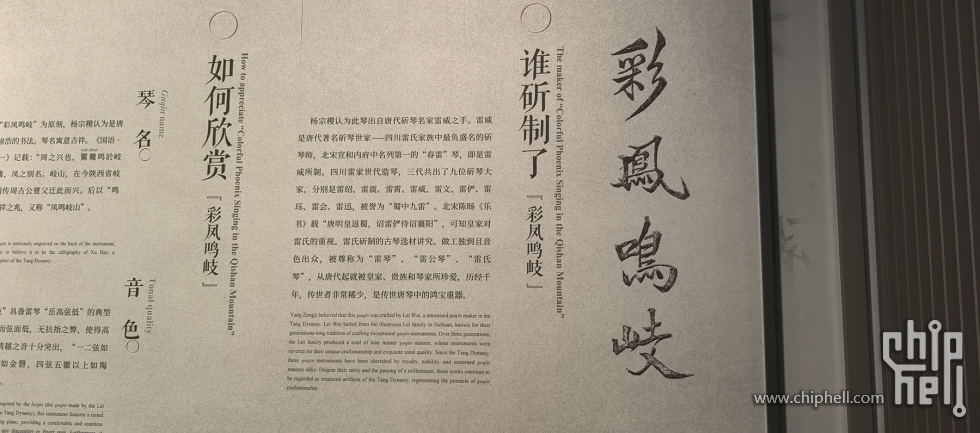 彩鳳鳴岐
谁斫制了『彩凤鸣岐』
The maker of "Colorful Phoenix Singing in the Qishan Mountain"
杨宗稷认为此琴出自唐代斫琴名家雷威之手。雷威
是唐代著名斫琴世家——四川雷氏家族中最负盛名的斫
琴师，北宋宣和内府中名列第一的“春雷”琴，即是雷
威所制。四川雷家世代造琴，三代共出了九位斫琴大
家，分别是雷绍、雷震、雷霄、雷威、雷文、雷俨、雷
珏、雷会、雷迅，被誉为“蜀中九雷”。北宋陈旸《乐
书》载“唐明皇返蜀，诏雷俨待诏襄阳”，可知皇家对
雷氏的重视。雷氏斫制的古琴选材讲究、做工独到且音
色出众，被尊称为“雷琴”、“雷公琴”、“雷氏
琴”，从唐代起就被皇家、贵族和琴家所珍爱，历经千
年，传世者非常稀少，是传世唐琴中的鸿宝重器。
Yang Zongji believed that this guqin was crafted by Lei Wei, a renowned guqin maker in the
Tang Dynasty. Lei Wei hailed from the illustrious Lei family in Sichuan, known for their
generations-long tradition of crafting exceptional guqin instruments. Over three generations,
the Lei family produced a total of nine master guqin makers, whose instruments were
revered for their unique craftsmanship and exquisite tonal quality. Since the Tang Dynasty,
these guqin instruments have been cherished by royalty, nobility, and esteemed guqin
masters alike. Despite their rarity and the passing of a millennium, these works continue to
be regarded as treasured artifacts of the Tang Dynasty, representing the pinnacle of guqin
craftsmanship.
如何欣赏『彩凤鸣岐』
How to appreciate "Colorful Phoenix Singing in the Qishan Mountain"
琴名
Guqin name
“彩凤鸣岐”为原刻，杨宗稷认为是唐
徐浩的书法。琴名寓意吉祥。《国语·
一》记载：“周之兴也，鸑鷟鸣於岐
凤之别名。岐山，在今陕西省岐
传周古公亶父迁此而兴。后以“鸣
祥之兆，又称“凤鸣岐山”。
is intricately engraved on the back of the instrument,
to believe it to be the calligraphy of Xu Hao, a
of the Tang Dynasty.
音色
Tonal quality
具备雷琴“岳高弦低”的典型
而弦面低，无抗指之弊，使得高
清越之音十分突出，“一二弦如
如金磬，四弦五徽以上如羯
inspired by the leiqin (the guqin made by the Lei
Tang Dynasty), this instrument features a raised
plane, providing a comfortable and seamless
www.chiphell.com
chiphell